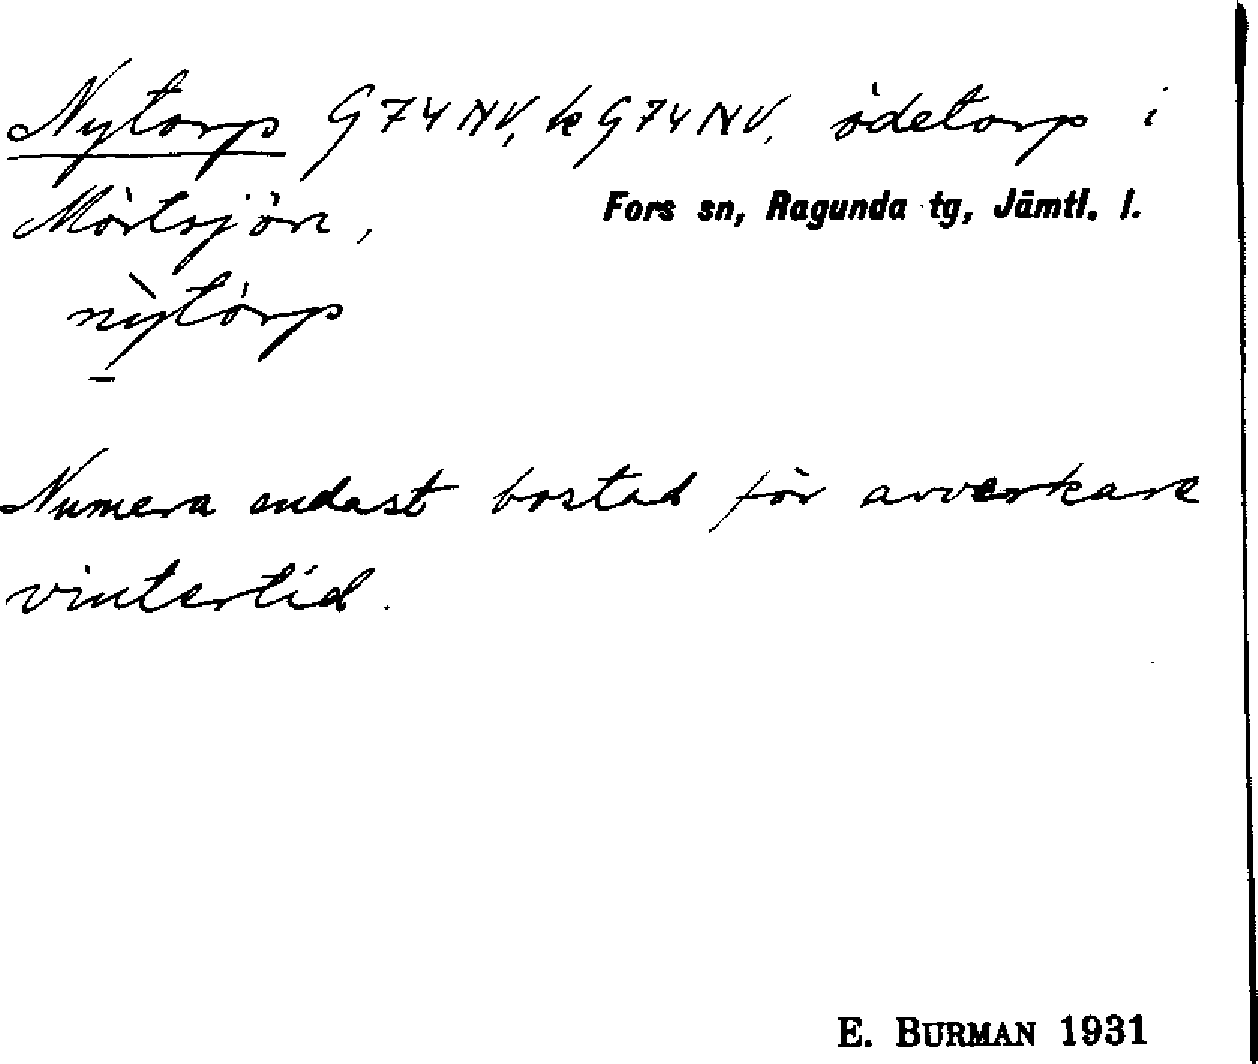 Nytorp G74NV, k G74NV, ödetorp i
Mörtsjön, Fors sn, Ragunda tg, Jämtl. l.
nỳtórp
Numera endast bostad för avverkare
vintertid.
E. BURMAN 1931